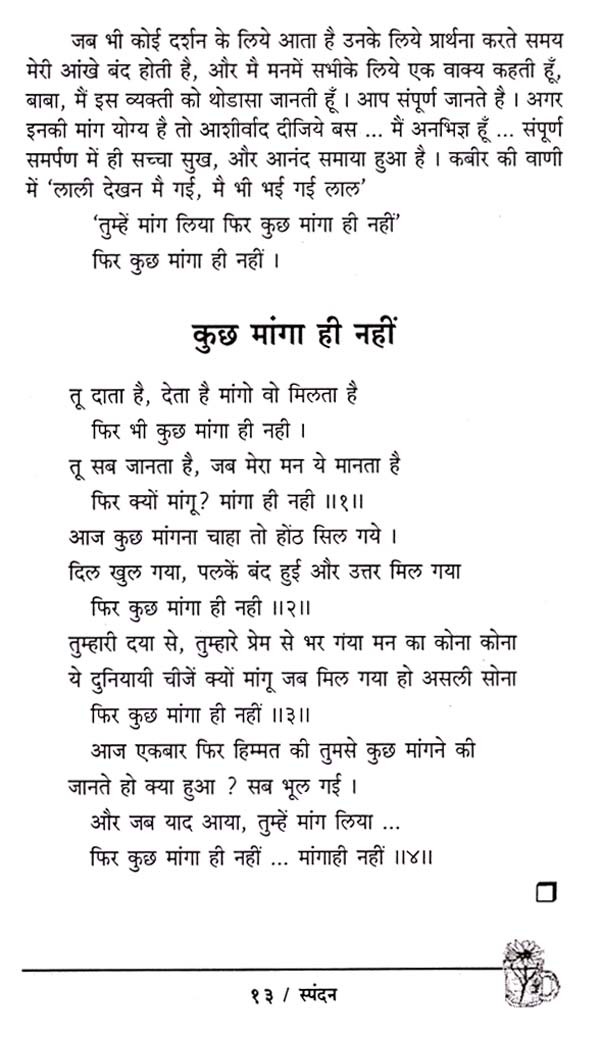 जब भी कोई दर्शन के लिये आता है उनके लिये प्रार्थना करते समय
मेरी आंखे बंद होती है, और मै मनमें सभीके लिये एक वाक्य कहती हूँ,
बाबा, मैं इस व्यक्ती को थोडासा जानती हूँ । आप संपूर्ण जानते है । अगर
इनकी मांग योग्य है तो आशीर्वाद दीजिये बस ... मैं अनभिज्ञ हूँ ... संपूर्ण
समर्पण में ही सच्चा सुख, और आनंद समाया हुआ है । कबीर की वाणी
में ‘लाली देखन मै गई, मै भी भई गई लाल’
‘तुम्हें मांग लिया फिर कुछ मांगा ही नहीं’
फिर कुछ मांगा ही नहीं ।
कुछ मांगा ही नहीं
तू दाता है, देता है मांगो वो मिलता है
फिर भी कुछ मांगा ही नही ।
तू सब जानता है, जब मेरा मन ये मानता है
फिर क्यों मांगू? मांगा ही नही ॥१॥
आज कुछ मांगना चाहा तो होंठ सिल गये ।
दिल खुल गया, पलकें बंद हुई और उत्तर मिल गया
फिर कुछ मांगा ही नहीं ॥२॥
तुम्हारी दया से, तुम्हारे प्रेम से भर गया मन का कोना कोना
ये दुनियायी चीजें क्यों मांगू जब मिल गया हो असली सोना
फिर कुछ मांगा ही नहीं ॥३॥
आज एकबार फिर हिम्मत की तुमसे कुछ मांगने की
जानते हो क्या हुआ ? सब भूल गई ।
और जब याद आया, तुम्हें मांग लिया ...
फिर कुछ मांगा ही नहीं ... मांगाही नहीं ॥४॥
१३ / स्पंदन